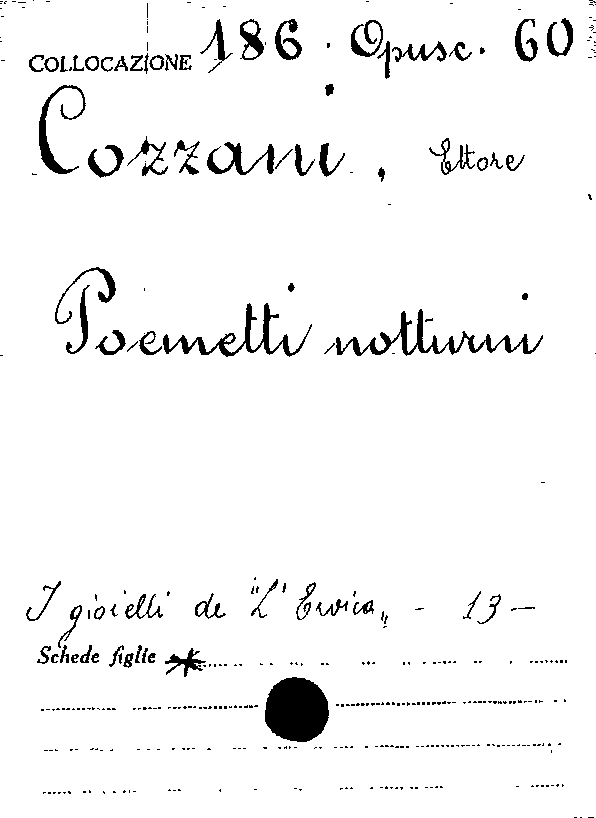 COLLOCAZIONE 186 . Opusc. 60
Cozzani, Ettore
Poemetti notturni
I gioielli de "L'Eroica" - 13 -
Schede figlie